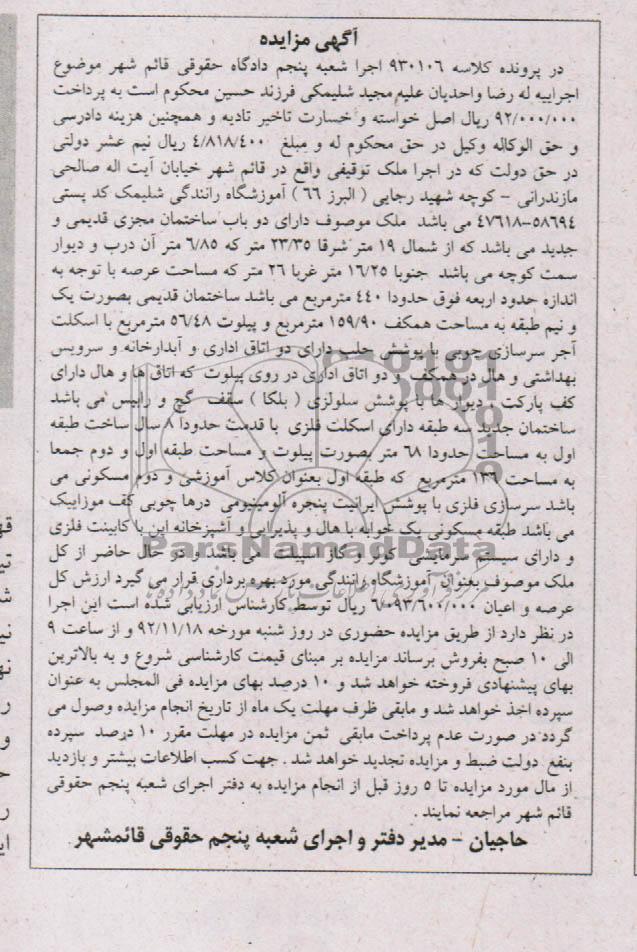 آگهی مزایده
در پرونده کلاسه ۹۳۰۱۰۶ اجرا شعبه پنجم دادگاه حقوقی قائم شهر موضوع
اجراییه له رضا واحدیان علیه مجید شلیمکی فرزند حسین محکوم است به پرداخت
۹۲/۰۰۰/۰۰۰ ریال اصل خواسته و خسارت تاخیر تادیه و همچنین هزینه دادرسی
و حق الوکاله وکیل در حق محکوم له و مبلغ ۴/۸۱۸/۴۰۰ ریال نیم عشر دولتی
در حق دولت که در اجرا ملک توقیفی واقع در قائم شهر خیابان آیت اله صالحی
مازندرانی - کوچه شهید رجایی ( البرز ۶۶ ) آموزشگاه رانندگی شلیمک کد پستی
۵۸۶۹۴-۴۷۶۱۸ می باشد ملک موصوف دارای دو باب ساختمان مجزی قدیمی و
جدید می باشد که از شمال ۱۹ متر شرقا ۲۳/۳۵ متر که ۶/۸۵ متر آن درب و دیوار
سمت کوچه می باشد جنوبا ۱۶/۲۵ متر غربا ۲۶ متر که مساحت عرصه با توجه به
اندازه حدود اربعه فوق حدودا ۴۴۰ مترمربع می باشد ساختمان قدیمی بصورت یک
و نیم طبقه به مساحت همکف ۱۵۹/۹۰ مترمربع و پیلوت ۵۶/۴۸ مترمربع با اسکلت
آجر سرسازی چوبی با پوشش حلب دارای دو اتاق اداری و آبدارخانه و سرویس
بهداشتی و هال در همکف و دو اتاق اداری در روی پیلوت که اتاق ها و هال دارای
کف پارکت ، دیوار ها با پوشش سلولزی ( بلکا ) سقف گچ و رابیس می باشد
ساختمان جدید سه طبقه دارای اسکلت فلزی با قدمت حدودا ۸ سال ساخت طبقه
اول به مساحت حدودا ۶۸ متر بصورت پیلوت و مساحت طبقه اول و دوم جمعا
به مساحت ۱۳۶ مترمربع که طبقه اول بعنوان کلاس آموزشی و دوم مسکونی می
باشد سرسازی فلزی با پوشش ایرانیت پنجره آلومینیومی درها چوبی کف موزاییک
می باشد طبقه مسکونی یک خوابه با هال و پذیرایی و آشپزخانه اپن با کابینت فلزی
و دارای سیستم سرمایشی کولر و گاز اسپیلت می باشد و در حال حاضر از کل
ملک موصوف بعنوان آموزشگاه رانندگی مورد بهره برداری قرار می گیرد ارزش کل
عرصه و اعیان ۶/۰۹۳/۶۰۰/۰۰۰ ریال توسط کارشناس ارزیابی شده است این اجرا
در نظر دارد از طریق مزایده حضوری در روز شنبه مورخه ۹۲/۱۱/۱۸ و از ساعت ۹
الی ۱۰ صبح بفروش برساند مزایده بر مبنای قیمت کارشناسی شروع و به بالاترین
بهای پیشنهادی فروخته خواهد شد و ۱۰ درصد بهای مزایده فی المجلس به عنوان
سپرده اخذ خواهد شد و مابقی ظرف مهلت یک ماه از تاریخ انجام مزایده وصول می
گردد در صورت عدم پرداخت مابقی ثمن مزایده در مهلت مقرر ۱۰ درصد سپرده
بنفع دولت ضبط و مزایده تجدید خواهد شد . جهت کسب اطلاعات بیشتر و بازدید
از مال مورد مزایده تا ۵ روز قبل از انجام مزایده به دفتر اجرای شعبه پنجم حقوقی
قائم شهر مراجعه نمایند .
حاجیان - مدیر دفتر و اجرای شعبه پنجم حقوقی قائمشهر
ParsNamadData